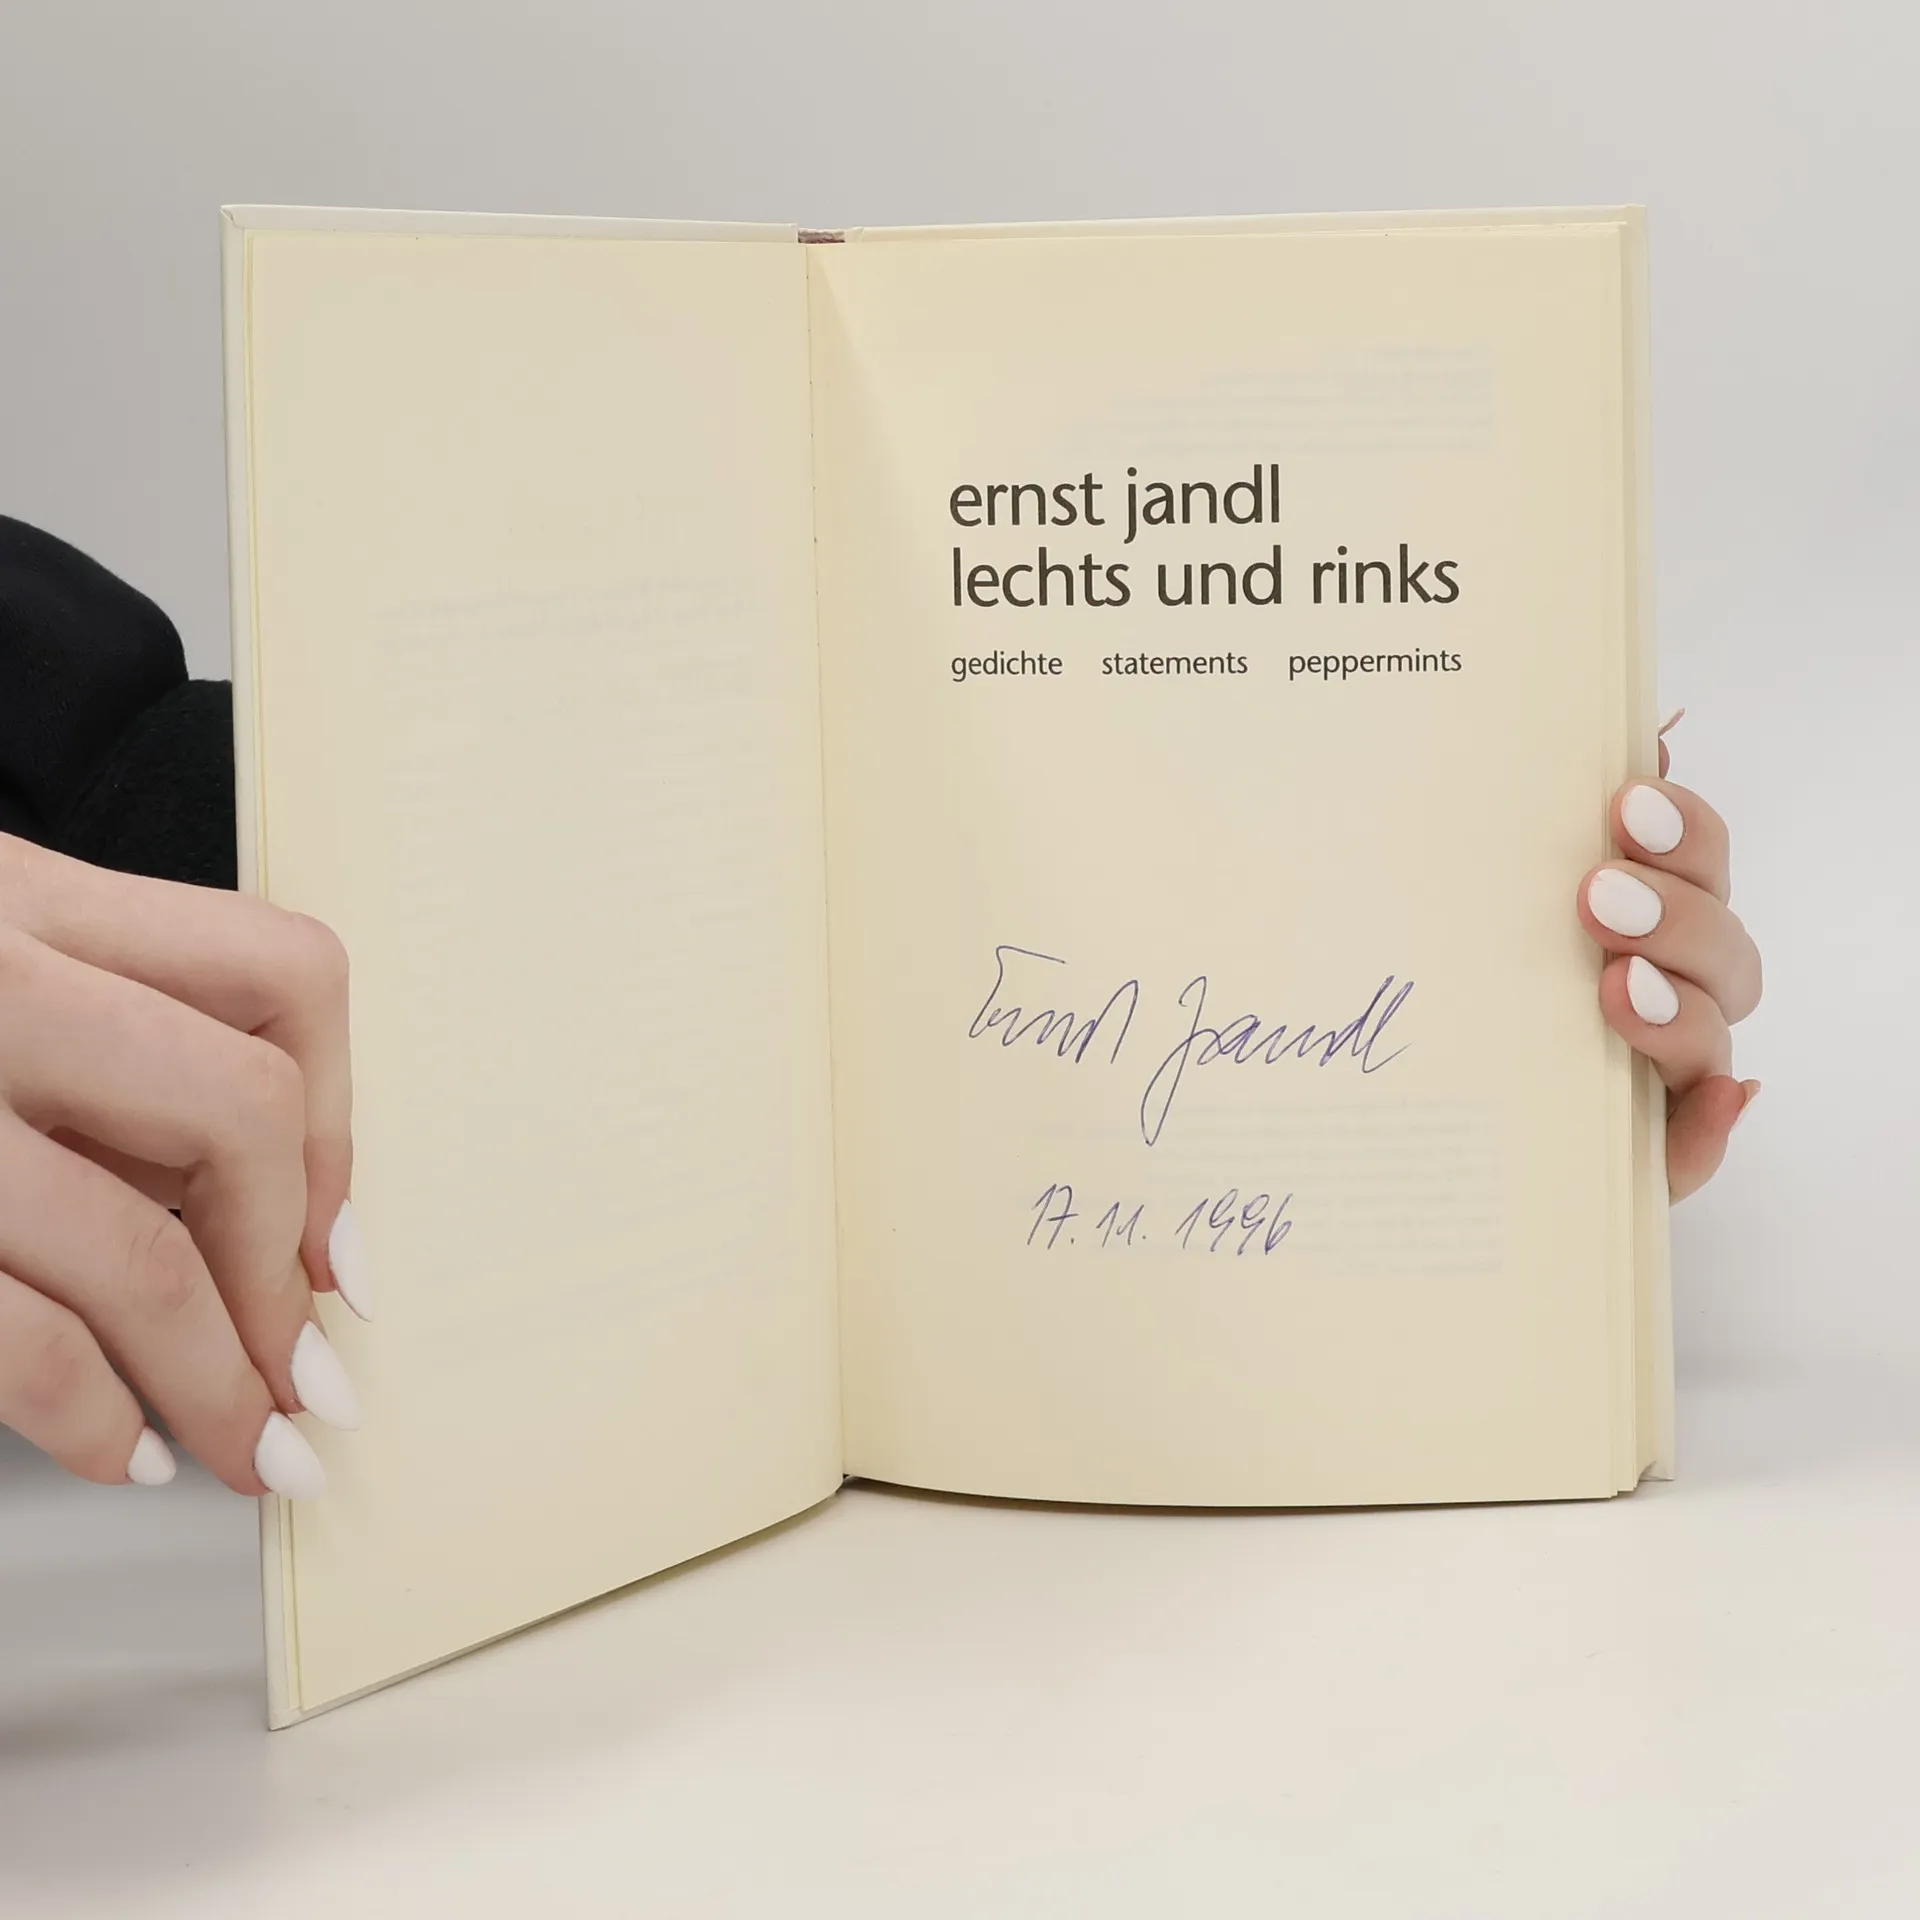 ernst jandl
lechts und rinks
gedichte statements peppermints
Ernst Jandl
17.11.1996